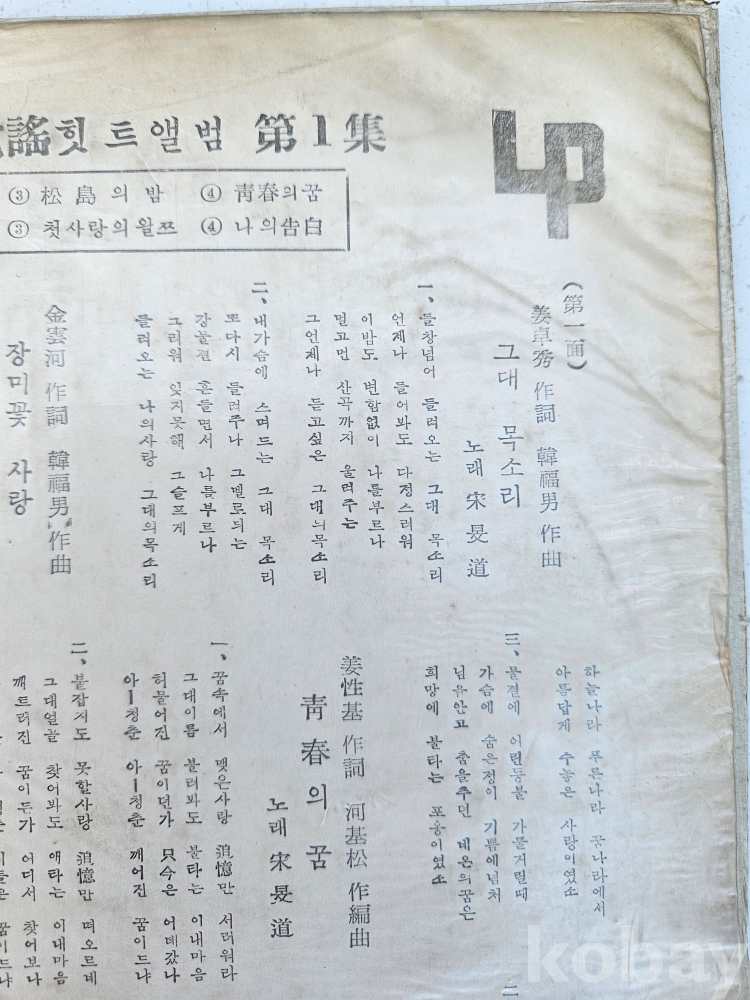 謠힛트앨범 第1集
LP
③ 松島의 밤 ④ 靑春의 꿈
③ 첫사랑의 왈쯔 ④ 나의 告白
(第一面)
姜卓秀 作詞 韓福男 作曲
그대 목소리
노래 宋旻道
一、들창넘어 들려오는 그대 목소리
언제나 들어봐도 다정스러워
이밤도 변함없이 나를부르나
멀고먼 산곡까지 울려주는
그언제나 듣고싶은 그대늬목소리
二、내가슴에 스며드는 그대 목소리
또다시 들려주나 그멜로듸는
강물결 흔들면서 나를부르나
그리워 잊지못해 그슬프게
들려오는 나의사랑 그대의목소리
金雲河 作詞 韓福男 作曲
장미꽃 사랑
하늘나라 푸른나라 꽃나라에서
아름답게 수놓은 사랑이였소
三、물결에 어린등불 가물거릴때
가슴에 숨은정이 기쁨에넘처
님을안고 춤을추던 네온의꿈은
희망에 불타는 포옹이였소
姜性基 作詞 河基松 作編曲
靑春의 꿈
노래 宋旻道
一、꿈속에서 맺은사랑 追憶만 서러워라
그대이름 불러봐도 불타는 이내마음
허물어진 꿈이던가 只今은 어데갔나
아ー청춘 아ー청춘 깨어진 꿈이드냐
二、붙잡지도 못할사랑 追憶만 떠오르네
그대얼골 찾어봐도 애타는 이내마음
깨트러진 꿈이든가 어디서 찾어보나
꿈이드냐
二
kobay